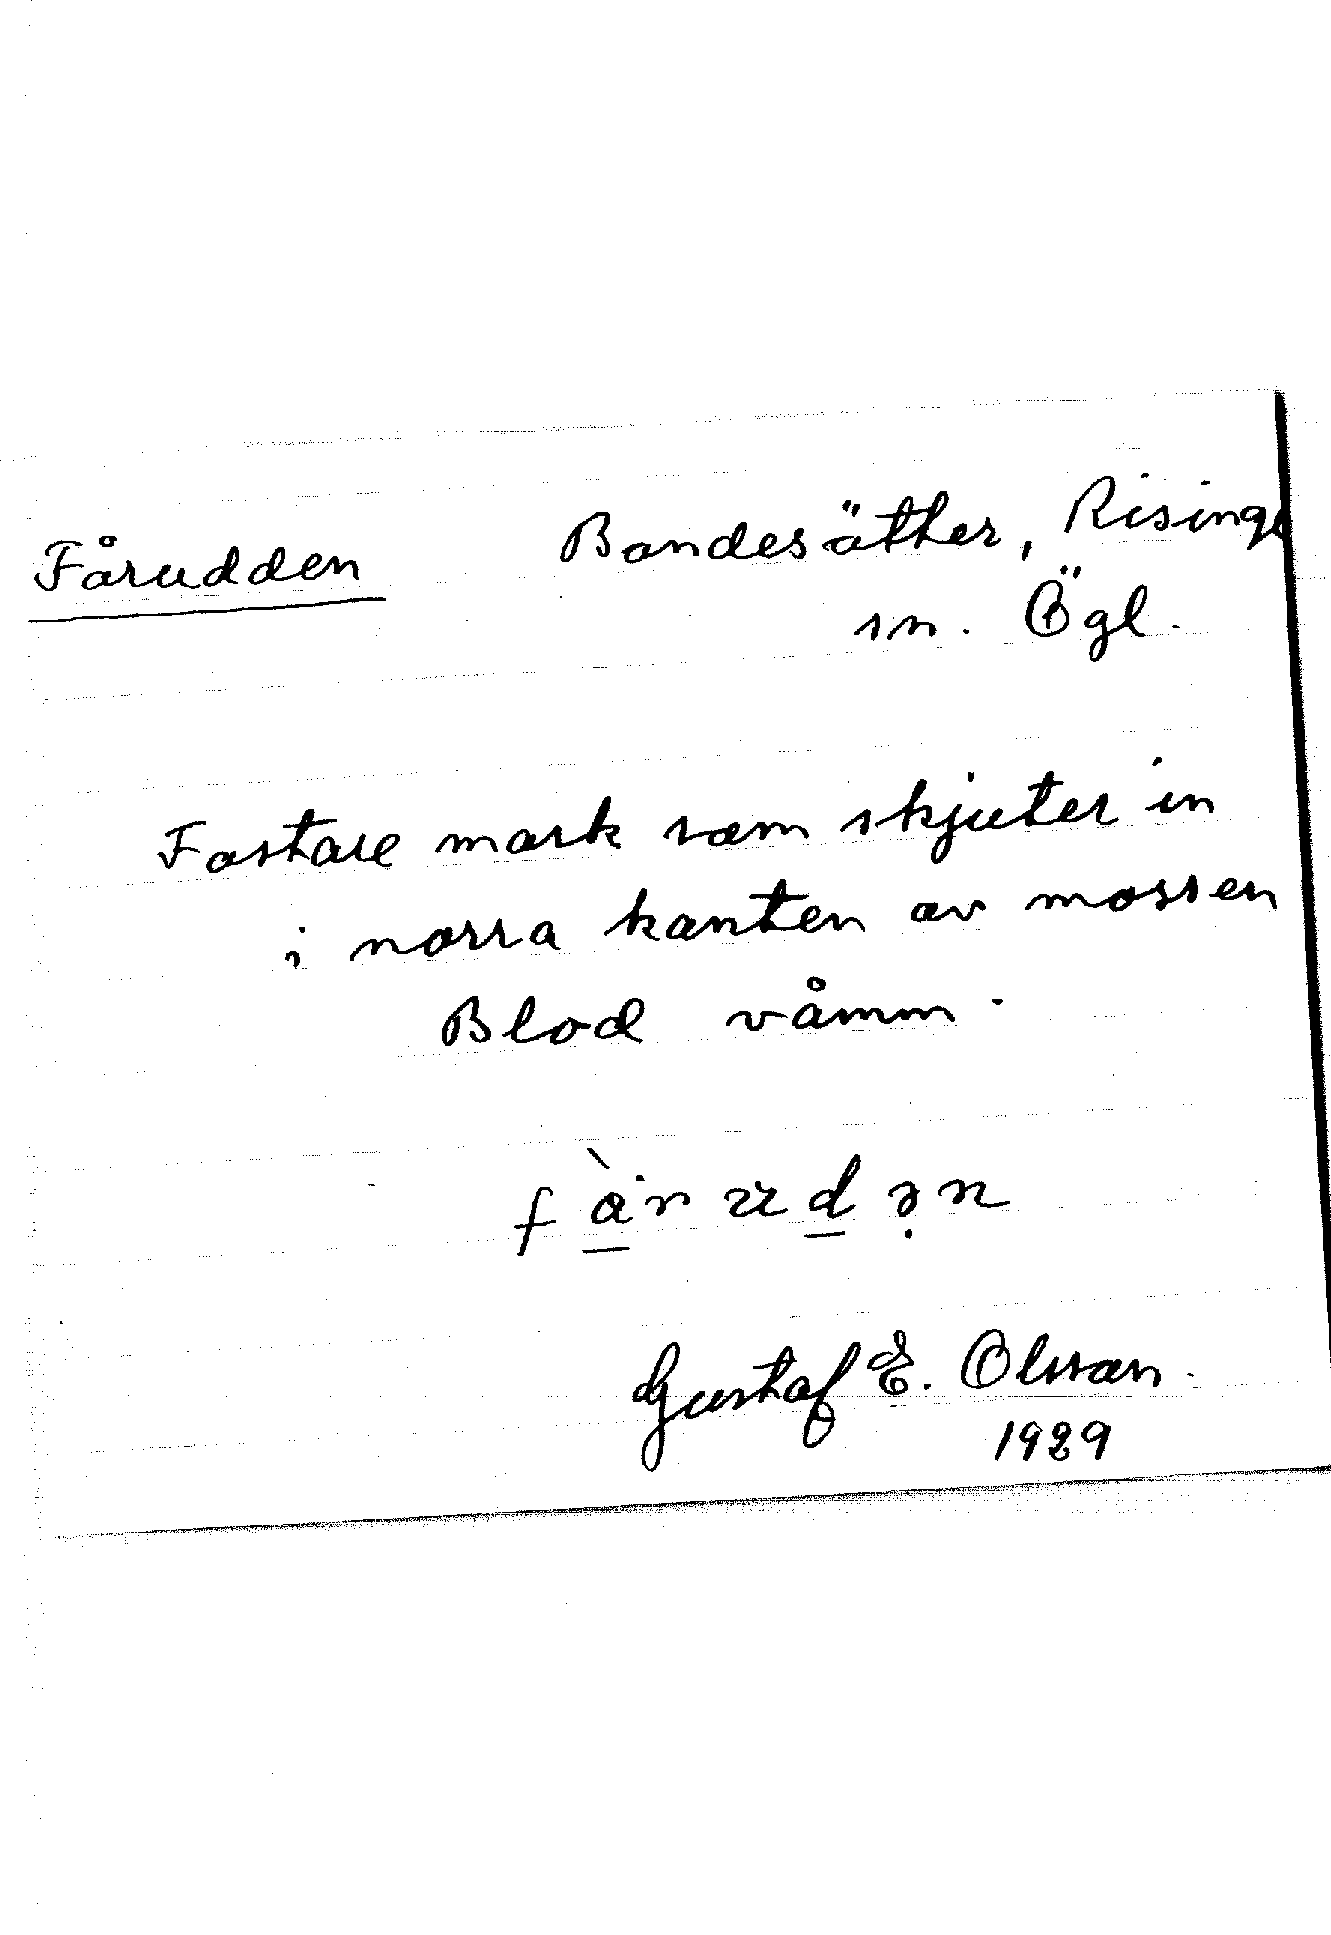 Fårudden Bondesäther, Risinge
sn. Ögl.
Fastare mark som skjuter in
i norra kanten av mossen
Blod våmm.
fὰrudən
Gustaf E. Olsson.
1929